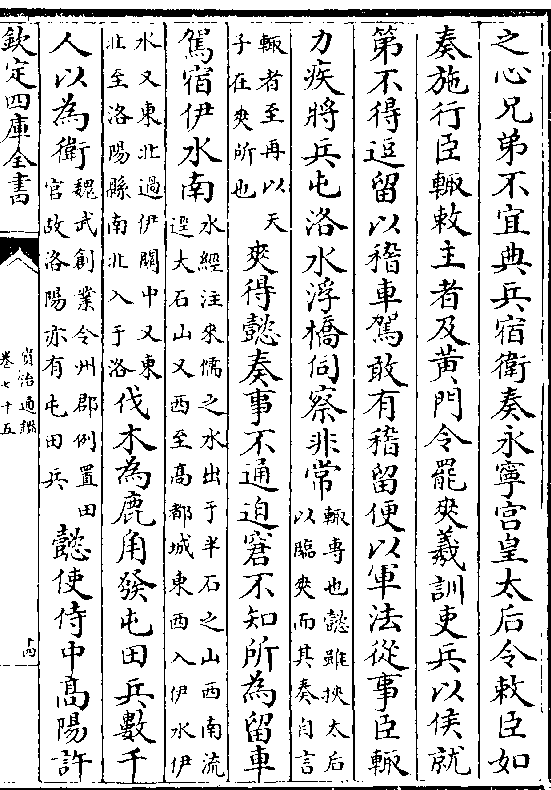 之心兄弟不宜典兵宿衛奏永寧宮皇太后令敕臣如
奏施行臣輙敕主者及黃門令罷爽羲訓吏兵以侯就
第不得逗留以稽車駕敢有稽留便以軍法從事臣輙
力疾將兵屯洛水浮橋伺察非常輙專也懿雖挾太后
以臨爽而其奏自言
輙者至再以天
子在爽所也爽得懿奏事不通迫窘不知所為留車
駕宿伊水南水經注來儒之水出于半石之山西南流
逕大石山又西至高都城東西入伊水伊
水又東北過伊闕中又東
北至洛陽縣南北入于洛伐木為鹿角發屯田兵數千
人以為衛魏武創業令州郡例置田
官故洛陽亦有屯田兵懿使侍中高陽許
欽定四庫全書
資治通鑑
卷七十五
十四